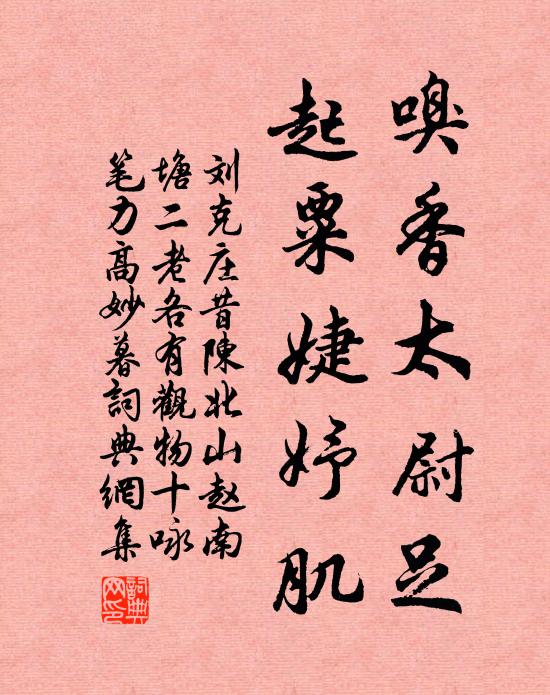 嗅香太尉足
起粟婕妤肌
刘克庄昔陳北山赵南
塘二老各有觀物十咏
笔力高妙暮詞典網集
詞典网印